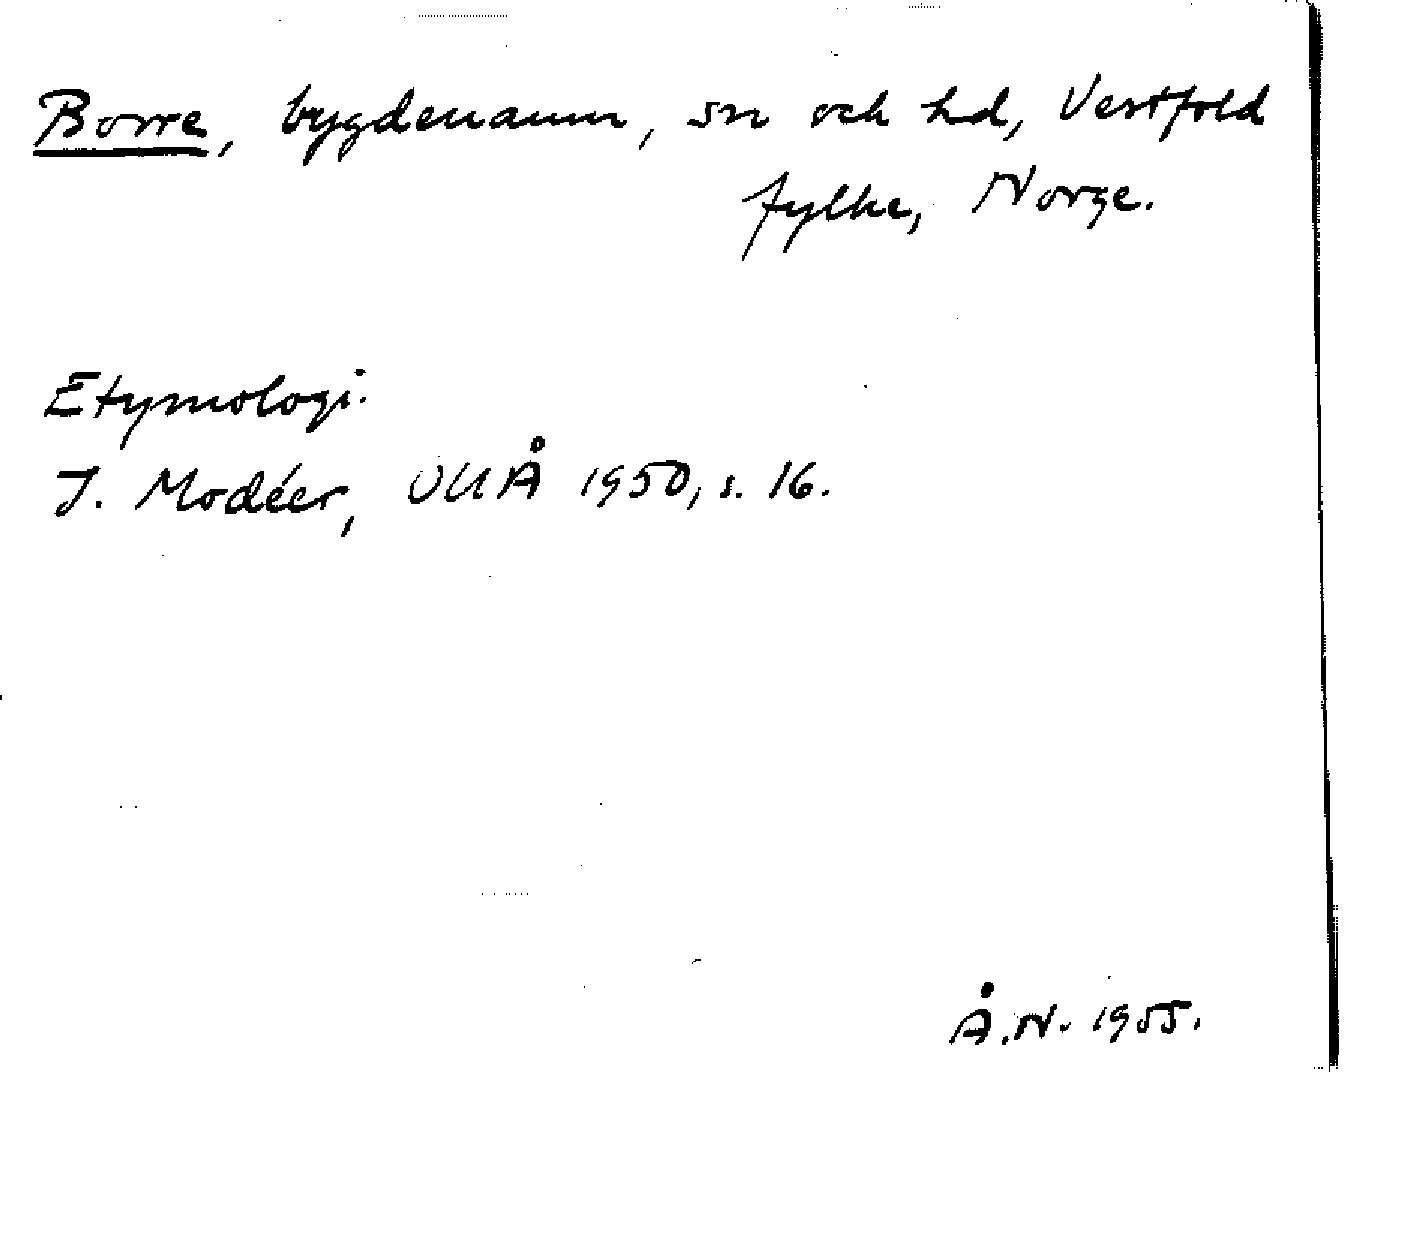 Borre, bygdenamn, sn och hd, Vestfold
fylke, Norge.
Etymologi.
J. Modéer, UUÅ 1950, s. 16.
Å.N. 1955.